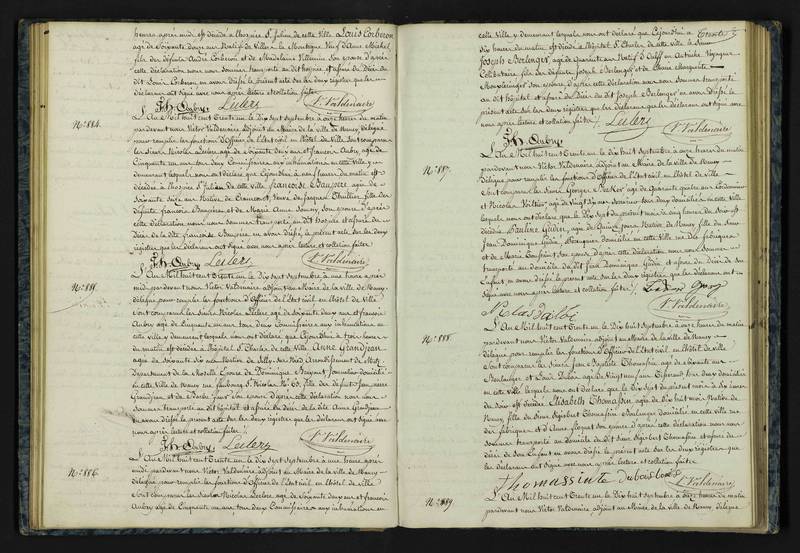 heures après midi est décédé à l'hospice St. Julien de cette ville Louis Corberon
agé de Soixante douze ans Natif de Villers la Montagne Veuf d'Anne Michel
fils des défunts André Corberon et de Madelaine Villemin Son épouse d'après
cette déclaration nous nous sommes transporté au dit hospice et assuré du Décès du
dit Louis Corberon en avons dressé le présent acte sur les deux registres que les
déclarans ont signé avec nous après lecture et collation faites
Fs. Aubry Leclerc Vr. Valdenaire
No. 884. L'An Mil huit cent Trente un le Dix Sept Septembre à onze heures du matin
pardevant nous Victor Valdenaire adjoint au Maire de la ville de Nancy Délégué
pour remplir les fonctions d'Officier de l'Etat civil en l'hôtel de Ville sont comparus
les Sieurs Nicolas Leclerc agé de Soixante deux ans et françois Aubry agé de
Cinquante un ans tous deux Commissaires aux inhumations en cette ville y
demeurant lesquels nous ont déclaré que Cejourd'hui à heures du matin est
décédée à l'hospice St Julien de cette ville françoise Baupère agée de
Soixante ans Native de Veuve de Jacques Thullier fille des
défunts françois et de Marie Anne Son épouse d'après
cette déclaration nous nous sommes transporté au dit hospice et assuré du
décès de la dite françoise Baupère en avons dressé le présent acte sur les deux
registres que les déclarans ont signé avec nous après lecture et collation faites
Fs. Aubry Leclerc Vr. Valdenaire
No. 885. L'An Mil huit cent Trente un le Dix Sept Septembre à une heure après
midi pardevant nous Victor Valdenaire adjoint au Maire de la ville de Nancy
délégué pour remplir les fonctions d'Officier de l'Etat civil en l'hôtel de Ville
sont comparus les Sieurs Nicolas Leclerc agé de Soixante deux ans et françois
Aubry agé de Cinquante un ans tous deux Commissaires aux inhumations en
cette ville y demeurant lesquels nous ont déclaré que Cejourd'hui à trois heures
du matin est décédée à l'hôpital St Charles de cette ville Anne Grandjean
agée de Soixante dix ans Native de Arrondissement de Metz
département de la Moselle Epouse de Dominique Journalier domicilié
en cette ville de Nancy au faubourg St Nicolas No. fille des défunts Jean pierre
Grandjean et de Son épouse d'après cette déclaration nous nous
sommes transporté au dit hôpital et assuré du décès de la dite Anne Grandjean
en avons dressé le présent acte sur les deux registres que les déclarans ont signé avec
nous après lecture et collation faites
Fs. Aubry Leclerc Vr. Valdenaire
No. 886. L'An Mil huit cent Trente un le Dix Sept Septembre à une heure après
midi pardevant nous Victor Valdenaire adjoint au Maire de la ville de Nancy
délégué pour remplir les fonctions d'Officier de l'Etat civil en l'hôtel de Ville
sont comparus les Sieurs Nicolas Leclerc agé de Soixante deux ans et françois
Aubry agé de Cinquante un ans tous deux Commissaires aux inhumations en
cette ville y demeurant lesquels nous ont déclaré que Cejourd'hui à
dix heures du matin est décédé à l'hôpital St. Charles de cette ville le Sieur
Joseph Berlenger agé de Quarante ans Natif d' en Autriche Voyageur
Célibataire fils des défunts Joseph Berlenger et de Marie Marguerite
Son épouse d'après cette déclaration nous nous sommes transporté
au dit hôpital et assuré du Décès du dit Joseph Berlenger en avons dressé le
présent acte sur les deux registres que les déclarans ont signé avec
nous après lecture et collation faites Leclerc Vr. Valdenaire
Fs. Aubry
No. 887. L'An Mil huit cent Trente un le Dix Sept Septembre à onze heures du matin
pardevant nous Victor Valdenaire adjoint au Maire de la Ville de Nancy
délégué pour remplir les fonctions d'Officier de l'Etat civil en l'hôtel de Ville
sont comparus les Sieurs Georges agé de Quarante quatre ans Cordonnier
et Nicolas agé de Vingt Six ans tous deux domiciliés en cette ville
lesquels nous ont déclaré que le Dix Sept du présent mois à cinq heures du soir est
décédée agée de Quinze Jours Native de Nancy fille du Sieur
Jean Dominique domicilié en cette ville rue des fabriques
et de Marie Son épouse d'après cette déclaration nous nous sommes
transporté au domicile du dit Jean Dominique et assuré du décès de son
Enfant en avons dressé le présent acte sur les deux registres que les déclarans ont
signé avec nous après lecture et collation faites
Vr. Valdenaire
No. 888. L'An Mil huit cent Trente un le Dix huit Septembre à onze heures du matin
pardevant nous Victor Valdenaire adjoint au Maire de la ville de Nancy
délégué pour remplir les fonctions d'Officier de l'Etat civil en l'hôtel de ville
sont comparus les Sieurs Jean Baptiste Thomassin agé de Soixante ans
Boulanger et Louis Dubois agé de Vingt ans tous deux domiciliés
en cette ville lesquels nous ont déclaré que le Dix Sept du présent mois à dix heures
du soir est décédée Elisabeth Thomassin agée de Dix huit mois Native de
Nancy fille du Sieur Sigisbert Thomassin Boulanger domicilié en cette ville rue
des fabriques et d'Anne Son épouse d'après cette déclaration nous nous
sommes transporté au domicile du dit Sieur Sigisbert Thomassin et assuré du
décès de Son Enfant en avons dressé le présent acte sur les deux registres que
les déclarans ont signé avec nous après lecture et collation faites
Thomassin Dubois Louis Vr. Valdenaire
No. 889 L'An Mil huit cent Trente un le Dix huit Septembre à onze heures du matin
pardevant nous Victor Valdenaire adjoint au Maire de la ville de Nancy, délégué